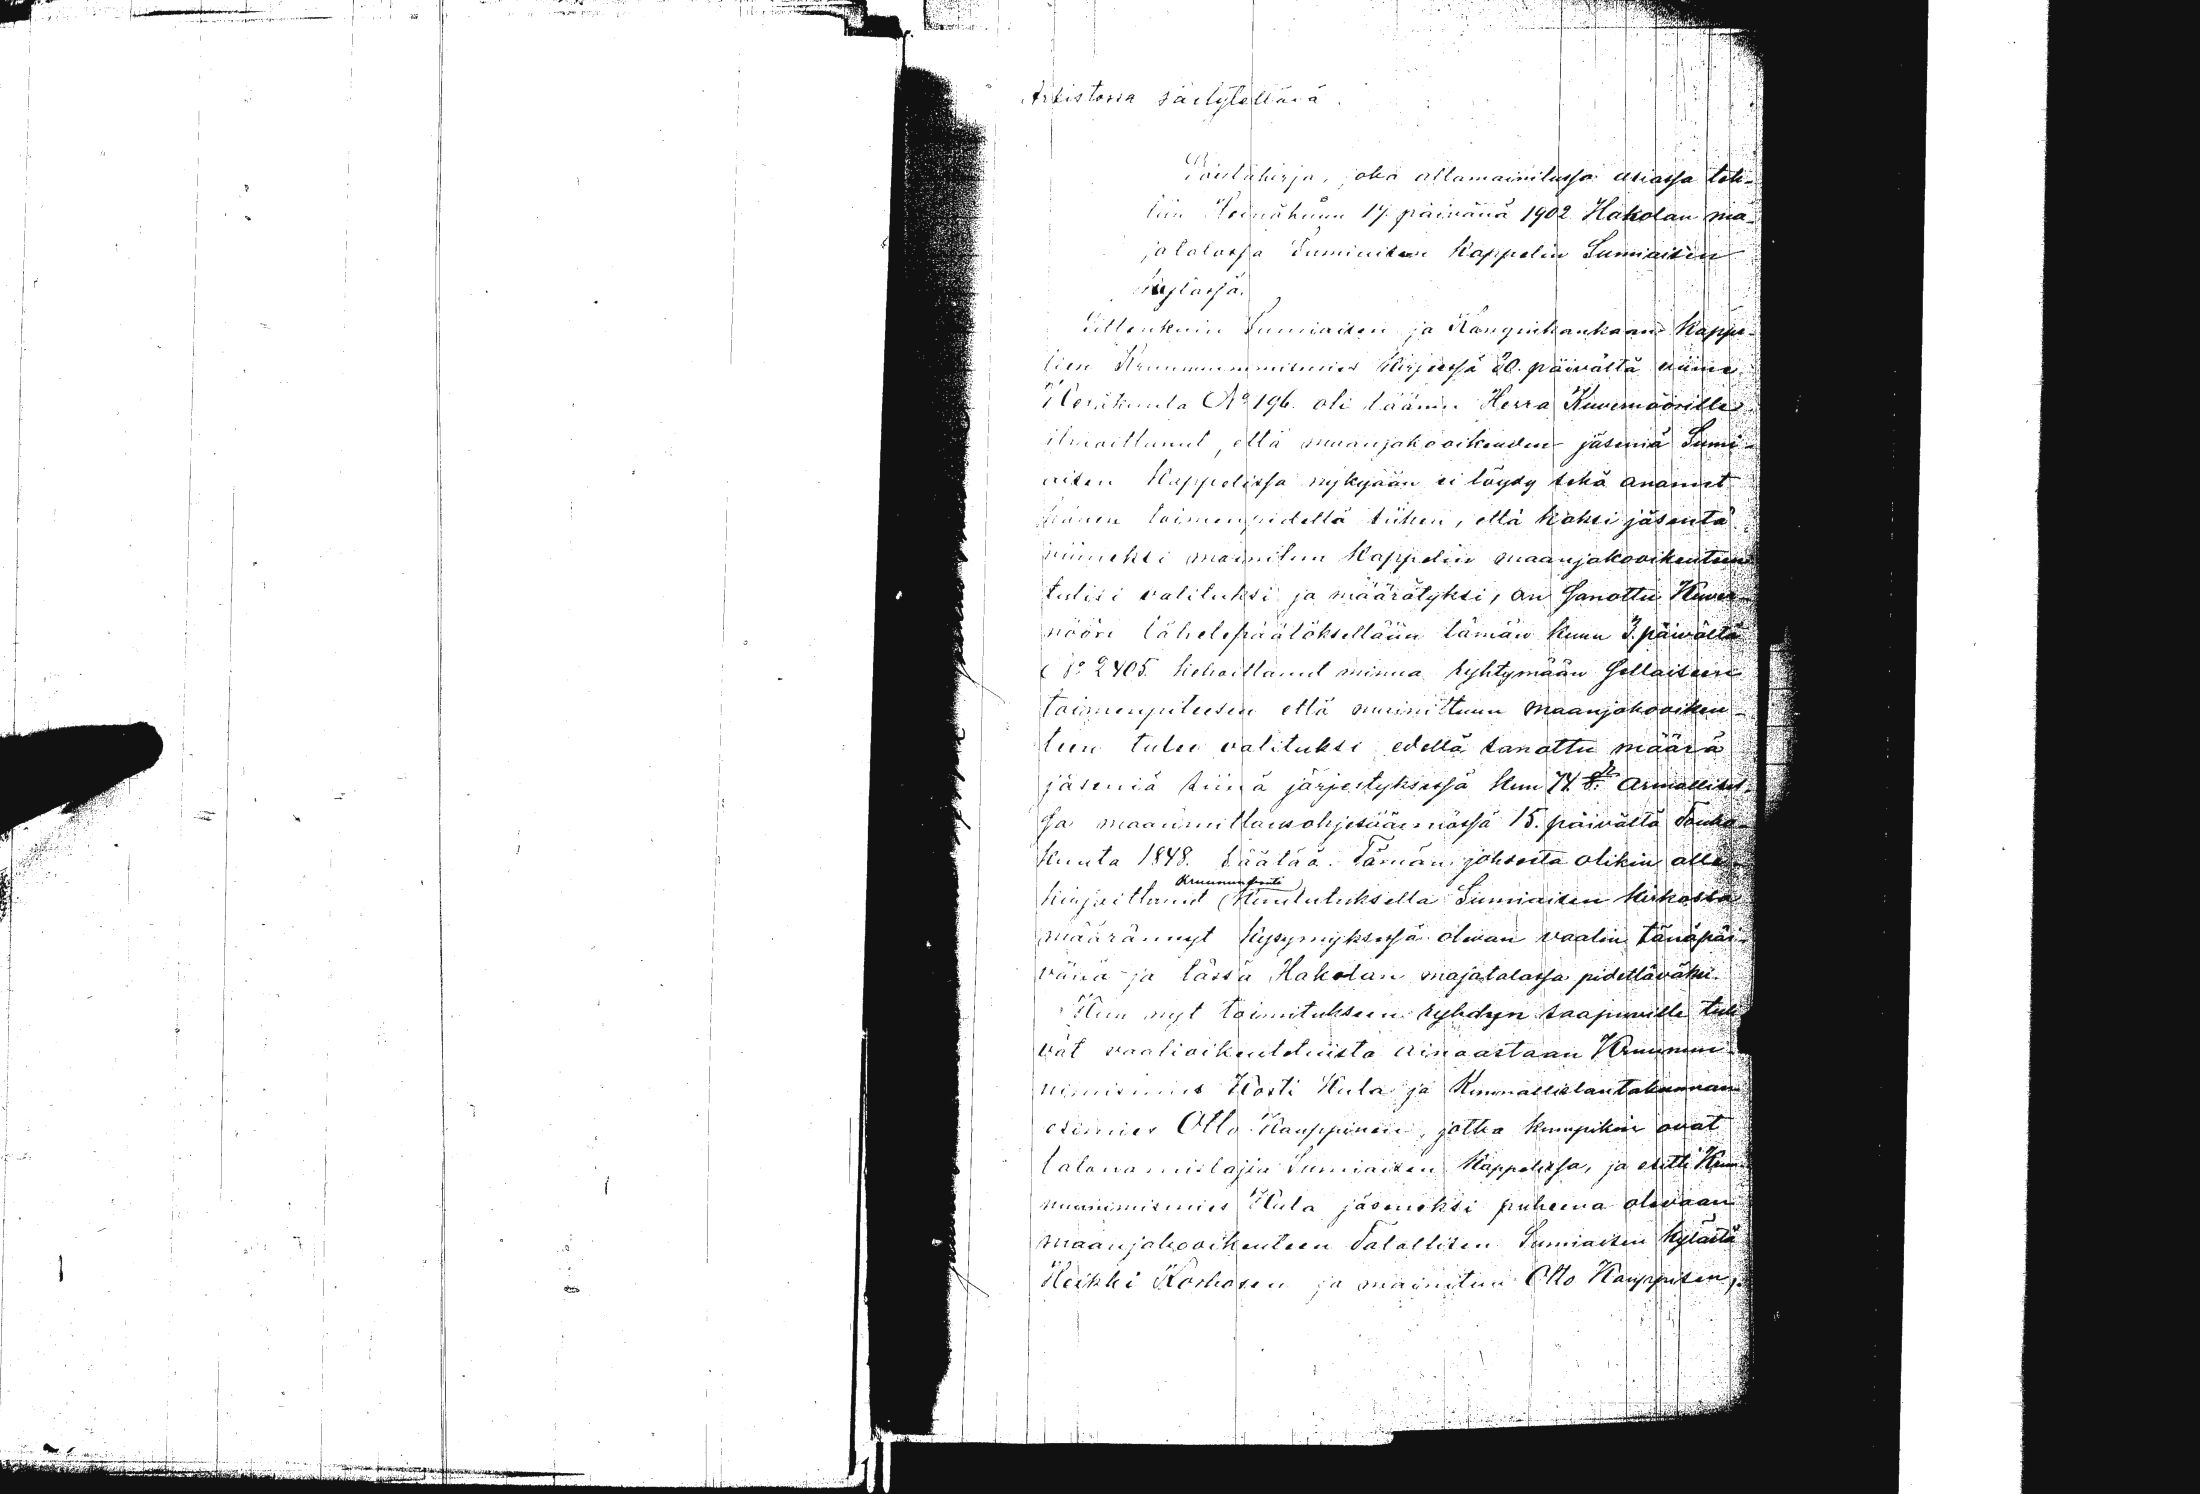 Arkistossa säilytettävä.
Pöytäkirja, joka allamainitussa asiassa teh-
tiin Heinäkuun 17. päivänä 1902 Hakolan ma-
jatalossa Sumiaisten Kappelin Sumiaisten
kylässä.
Sittenkuin Sumiaisten ja Konginkankaan Kappe-
lien Kruununnimismies kirjeessä 20. päivältä viime
Kesäkuuta No 196. oli läänin Herra Kuvernöörille
ilmoittanut, että maanjakooikeuden jäseniä Sumi-
aisten Kappelissa nykyään ei löydy sekä anonut
hänen toimenpidettä siihen, että kaksi jäsentä
viimeksi mainitun Kappelin maanjakooikeuteen
tulisi valituksi ja määrätyksi, on Sanottu Kuver-
nööri lähetepäätöksellään tämän kuun 3. päivältä
No 2405. kehoittanut minua ryhtymään Sellaiseen
toimenpiteeseen että mainittuun maanjakooikeu-
teen tulee valituksi edellä sanottu määrä
jäseniä siinä järjestyksessä kun 74 § Armollises-
sa maanmittausohjesäännössä 15. päivältä Touko-
kuuta 1848. säätää. Tämän johdosta olikin alle-
kirjoittanut Kruununvouti kuulutuksella Sumiaisten kirkossa
määrännyt kysymyksessä olevan vaalin tänäpäi-
vänä ja tässä Hakolan majatalossa pidettäväksi.
Kun nyt toimitukseen ryhdyn saapuville tuli-
vat vaalioikeutetuista ainoastaan Kruunun-
nimismies Kosti Hula ja Kunnallislautakunnan
esimies Otto Kauppinen, jotka kumpikin ovat
talonomistajia Sumiaisten Kappelissa, ja esitti Kruu-
nunnimismies Hula jäseneksi puheena olevaan
maanjakooikeuteen Talollisen Sumiaisten kylästä
Heikki Korhosen ja mainitun Otto Kauppisen,